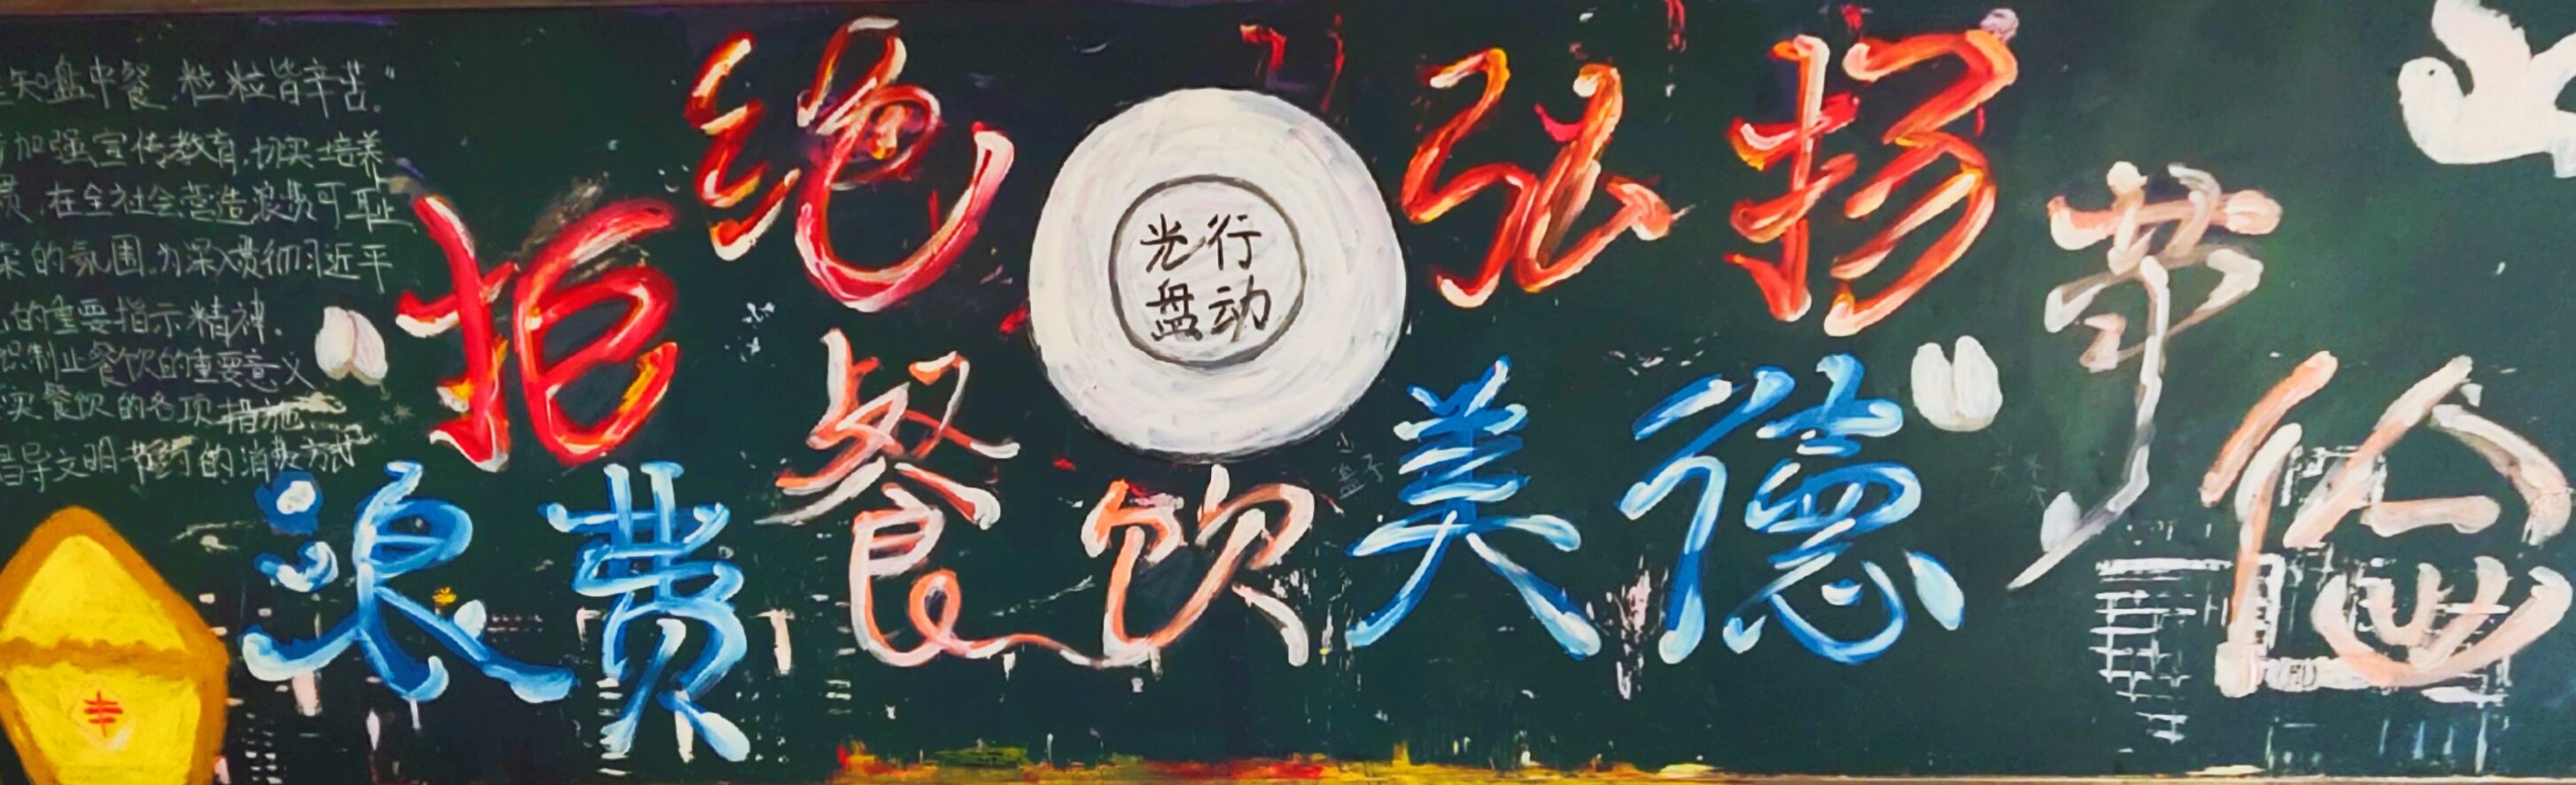 知盘中餐.粒粒皆辛苦."
加强宣传教育,切实培养
在全社会营造浪费可耻
的氛围.为深入贯彻习近平
的重要指示精神.
制止餐饮的重要意义
实餐饮的各项措施
倡导文明节约的消费方式
拒绝
餐饮
浪费
光盘
行动
弘扬
节俭
美德
丰